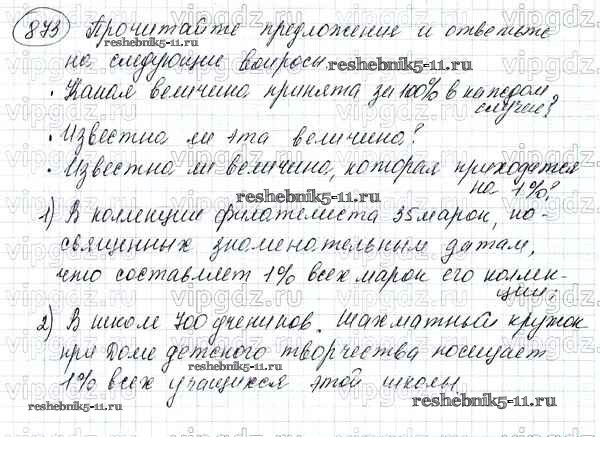 873) Прочитайте предложение и ответьте
на следующие вопросы
• Какая величина принята за 100% в каждом
случае?
• Известна ли эта величина?
• Известна ли величина, которая приходится
на 1%?
1) В коллекции филателиста 35 марок, по-
священных знаменательным датам,
что составляет 1% всех марок его коллек-
ции;
2) В школе 700 учеников. Шахматный кружок
при Доме детского творчества посещает
1% всех учащихся этой школы
reshebnik5-11.ru
reshebnik5-11.ru
reshebnik5-11.ru
reshebnik5-11.ru
reshebnik5-11.ru
vipgdz.ru